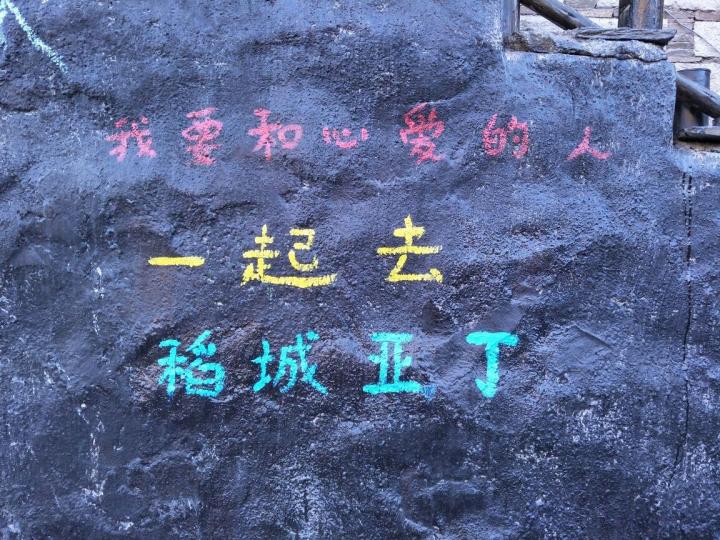 我要和心爱的人
一起去
稻城亚丁